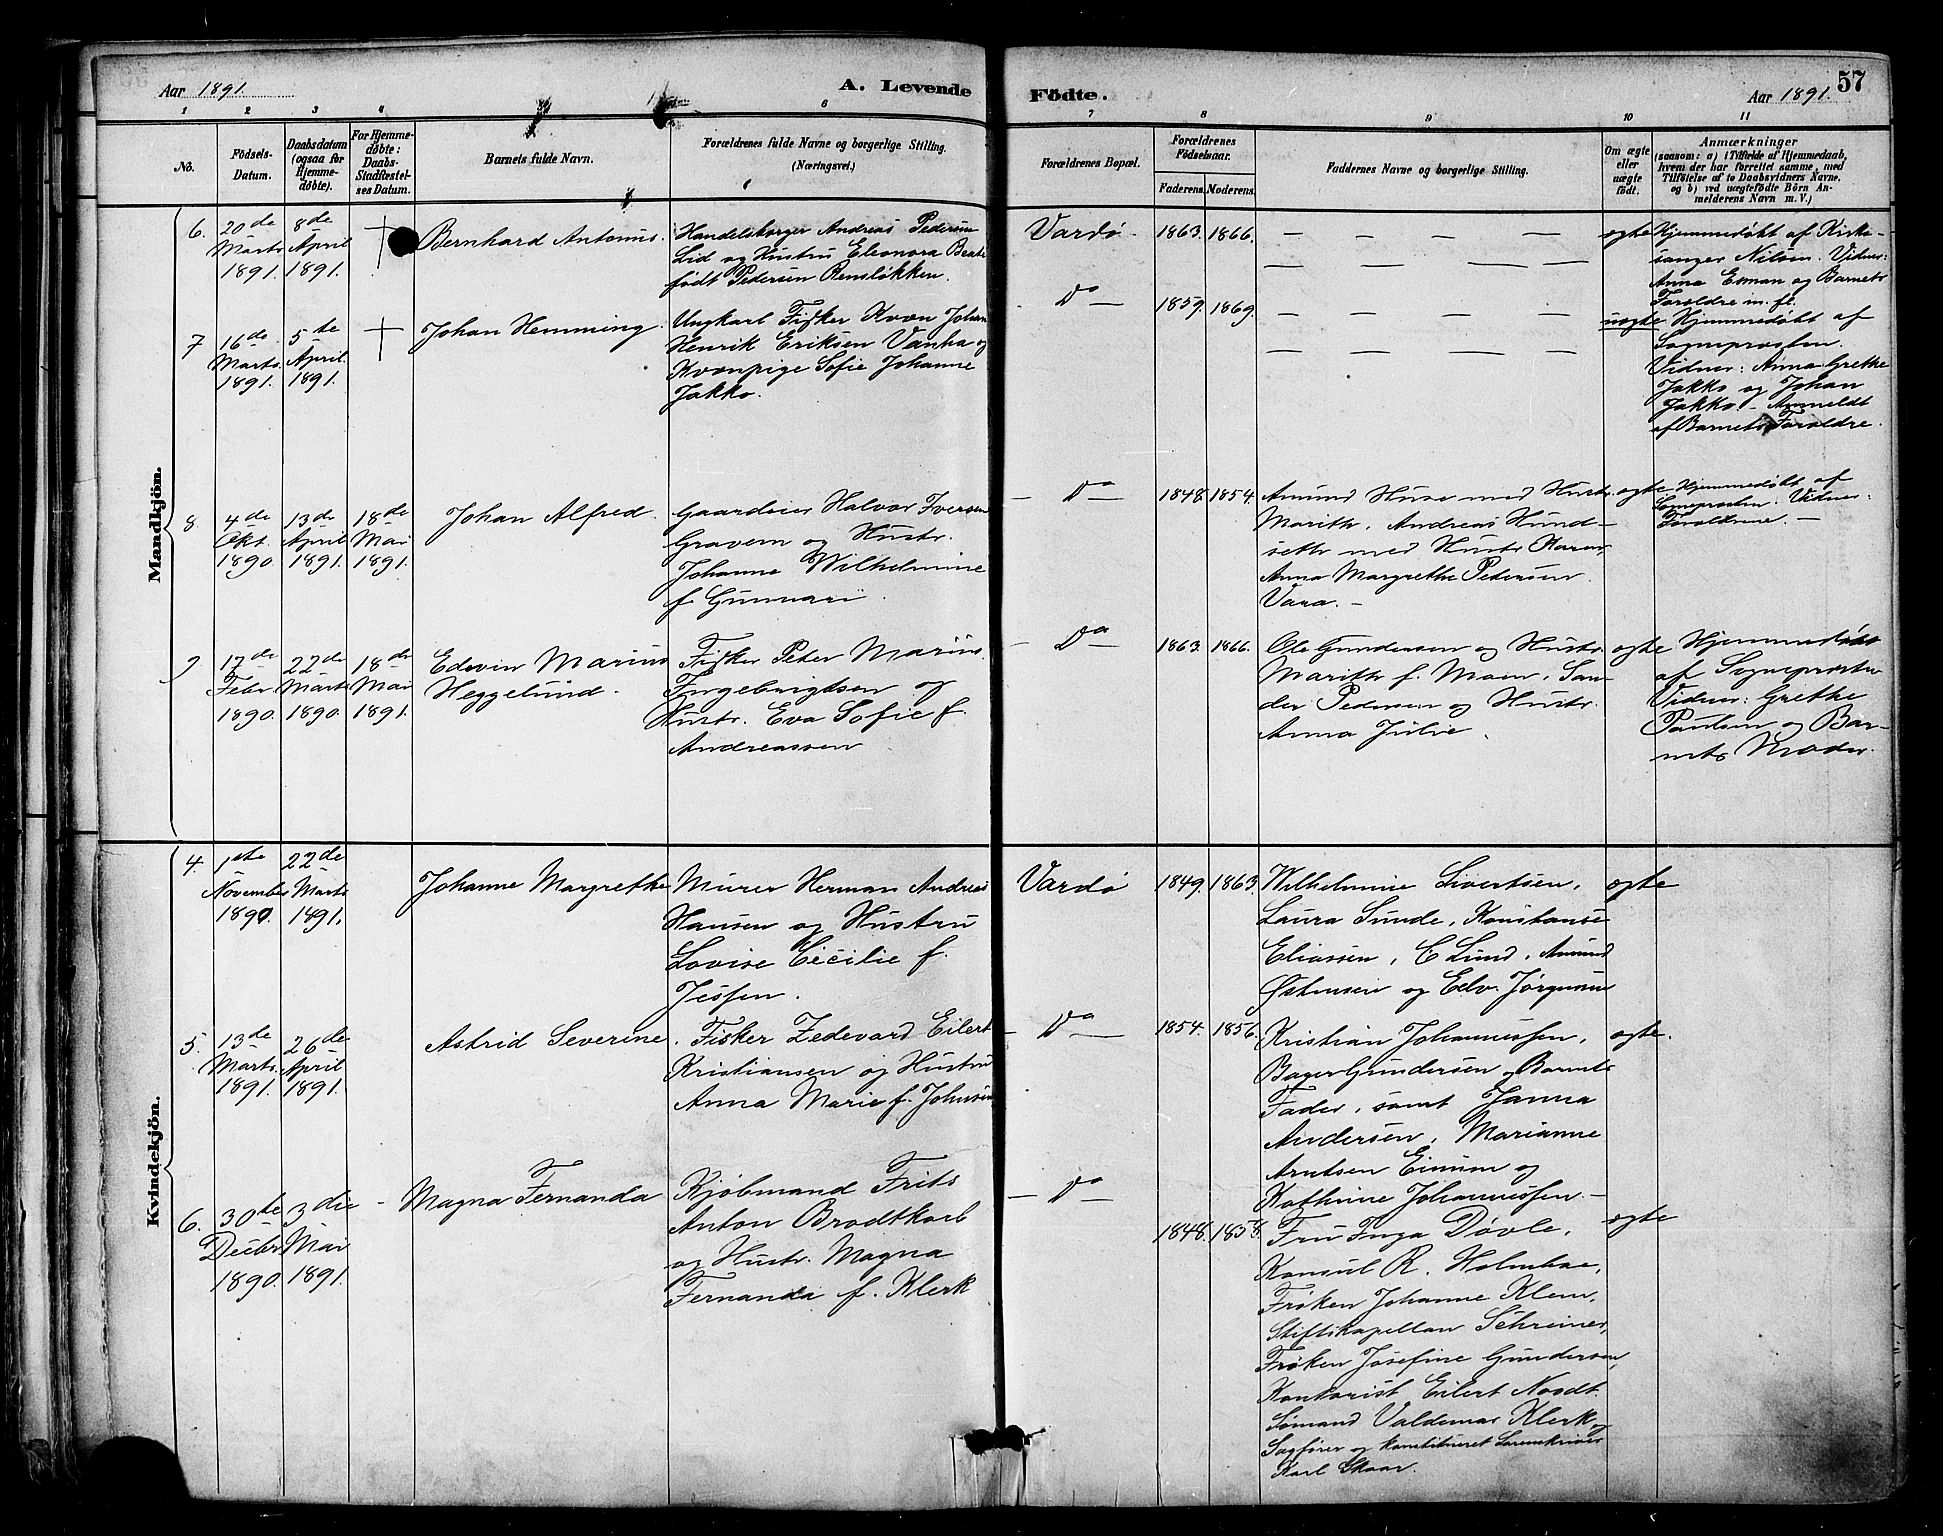 Aar 1891.
A. Levende
Födte.
57
Aar 1891.
1 2 3 4 6
7 8 9 10 11
No.
Födsels-
Datum.
Daabsdatum
(ogsaa for
Hjemme-
döbte).
For Hjemme-
döbte:
Daabs-
Stadfæstel-
ses Datum.
Barnets fulde Navn.
Forældrenes fulde Navne og borgerlige Stilling.
(Næringsvei.)
Forældrenes Bopæl.
Forældrenes
Födselsaar.
Faderens. Moderens.
Faddernes Navne og borgerlige Stilling.
Om ægte
eller
uægte
födt.
Anmærkninger
(saasom: a) i Tilfælde af Hjemmedaab,
hvem der har forrettet samme, med
Tilföielse af to Daabsvidners Navne,
og b) ved uægtefödte Börn An-
melderens Navn m. V.)
Mandkjön.
6.
20de
Marts
1891.
8de
April
1891.
Bernhard Antonus.
Handelsborger Andreas Pedersen
Lid og Hustru Eleonora Beate
født Pedersen Rensløkken.
Vardø.
1863. 1866.
ægte
Hjemmedøbt af Kirke-
sanger Nilsen. Vidner:
Anna Esman og Barnets
Forældre m. fl.
7
16de
Marts
1891.
5te
April
1891.
Johan Hemming.
Ungkarl Fisker Kvæn Johan
Henrik Eriksen Vanha og
Kvænpige Sofie Johanne
Jakko.
Do
1859. 1869.
uægte
Hjemmedøbt af
Sogneprosten.
Vidner: Anna Grethe
Jakko og Johan
Jakko - Anmeldt
af Barnets Forældre.
8.
4de
Okt.
1890
13de
April
1891.
18de
Mai
1891.
Johan Alfred.
Gaardeier Halvor Iversen
Gravem og Hustr.
Johanne Wilhelmine
f. Gunnari.
Do
1848. 1854.
Amund Huse med Hustr.
Marith, Andreas Hund-
seth med Hustr Karen,
Anna Margrethe Pedersen
Vara. -
ægte
Hjemmedøbt af
Sogneprosten. Vidner:
Forældrene. -
9
17de
Febr
1890.
22de
Marts
1890.
18de
Mai
1891.
Edevin Marius
Heggelund.
Fisker Peter Marius
Ingebrigtsen og
Hustr. Eva Sofie f.
Andreassen
Do
1863. 1866.
Ole Gundersen og Hustr.
Marith f. Moen, San-
der Pedersen og Hustr.
Anna Julie.
ægte
Hjemmedøbt
af Sogneprosten
Vidner: Grethe
Paulsen og Bar-
nets Moder.
Kvindekjön.
4.
1ste
November
1890.
22de
Marts
1891.
Johanne Margrethe
Murer Herman Andreas
Hansen og Hustru
Lovise Cecilie f.
Jessen.
Vardø
1849. 1863.
Wilhelmine Sivertsen,
Laura Sunde, Konstanse
Eliassen, C Lund, Amund
Østensen og Edv. Jørgensen
ægte
5.
13de
Marts
1891.
26de
April
1891.
Astrid Severine.
Fisker Zedevard Eilert
Kristiansen og Hustru
Anna Marie f. Johnsen
Do
1854. 1856.
Kristian Johannessen,
Bager Gundersen og Barnets
Fader, samt Janna
Andersen, Marianne
Arntsen Einum og
Kathrine Johannessen. -
ægte.
6.
30te
Decbr
1890.
3die
Mai
1891.
Magna Fernanda
Kjøbmand Frits
Anton Brodtkorb
og Hustr. Magna
Fernanda f. Klerk
Do
1848. 1858.
Fru Inga Døvle,
Konsul R. Holmboe,
Frøken Johanne Klem,
Stiftskapellan Schreiner,
Frøken Josefine Gundersen,
Kontorist Eilert Noodt.
Sømand Valdemar Klerk, og
Sagfører og konstitueret Sorenskriver
Karl Skaar.
ægte